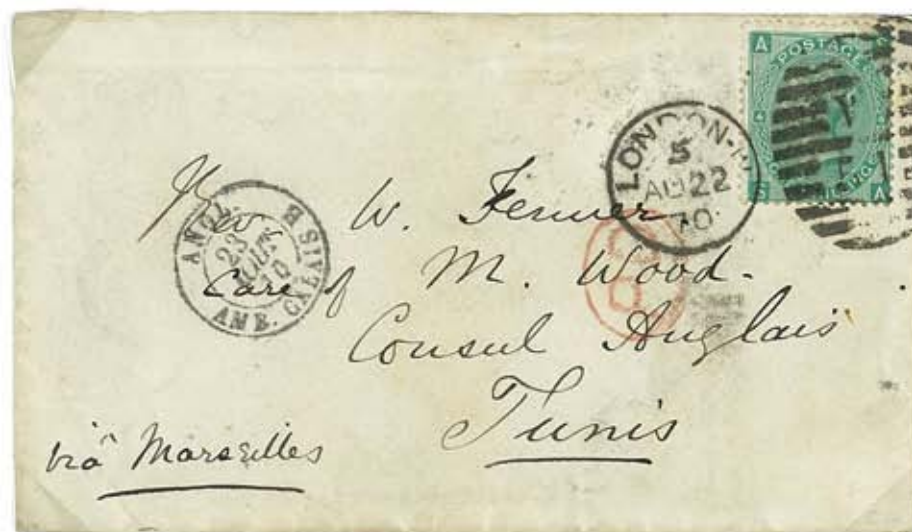 POSTAGE
A
LONDON-
5
AU 22
70
S A
ANGL.
23
AOUT
AMB. CALAIS B
Rev W. Fenner
Care of M. Wood-
Consul Anglais
Tunis
viâ Marseilles